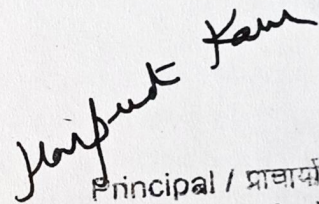 Harpreet Kaur
Principal / प्राचार्या